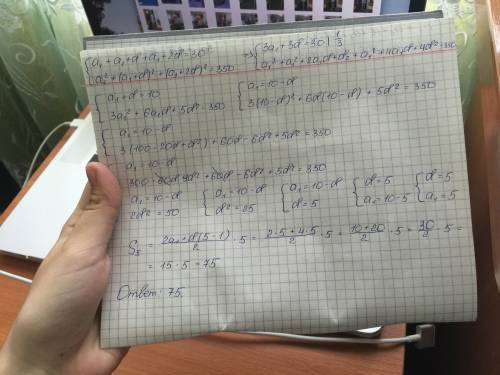 {a₁+a₁+d+a₁+2d=30 → {3a₁+3d=30 | 1/3
{a₁²+(a₁+d)²+(a₁+2d)²=350 {a₁²+a₁²+2a₁d+d²+a₁²+4a₁d+4d²=350
{a₁+d=10 {a₁=10-d
{3a₁²+6a₁d+5d²=350 {3(10-d)²+6d(10-d)+5d²=350
{a₁=10-d
{3(100-20d+d²)+60d-6d²+5d²=350
a₁=10-d
300-60d+3d²+60d-6d²+5d²=350
{a₁=10-d {a₁=10-d {a₁=10-d {d=5 {d=5
{2d²=50 {d²=25 {d=5 {a₁=10-5 {a₁=5
S₅ = 2a₁+d(5-1)/2 · 5 = 2·5+4·5/2 · 5 = 10+20/2 · 5 = 30/2 · 5 =
= 15·5=75
Ответ: 75.